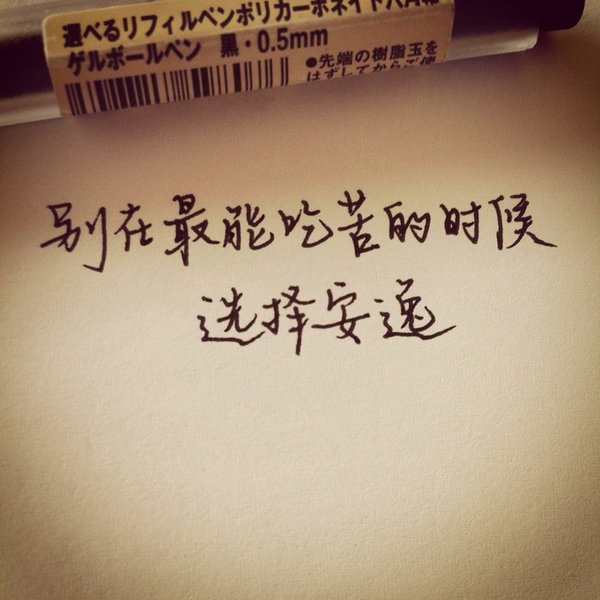 選べるリフィルペンポリカーボネイト六角軸
ゲルボールペン 黒・0.5mm
●先端の樹脂玉を
はずしてからご使
别在最能吃苦的时候
选择安逸